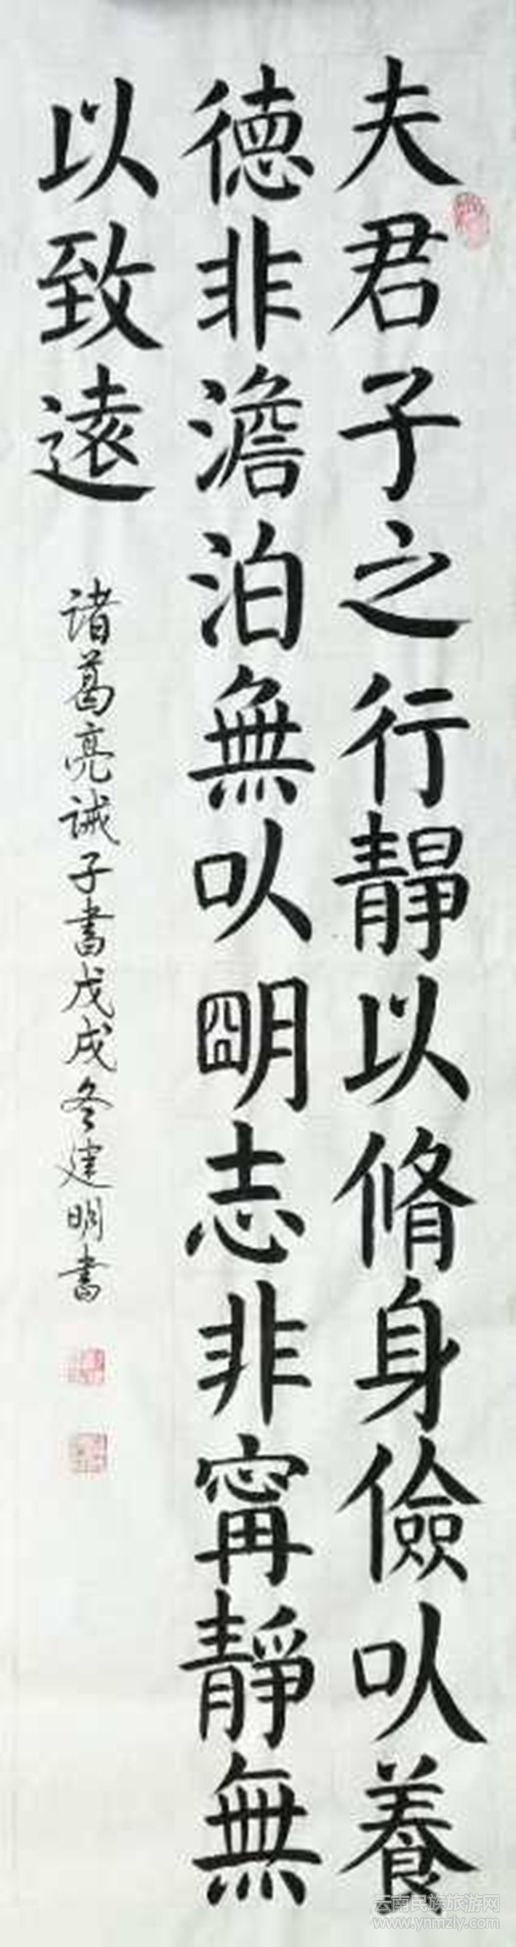 夫君子之行靜以脩身儉以養
德非澹泊無以明志非寧靜無
以致遠
诸葛亮诫子書戊戌冬建明書
云南民族旅游网
www.ynmzly.com